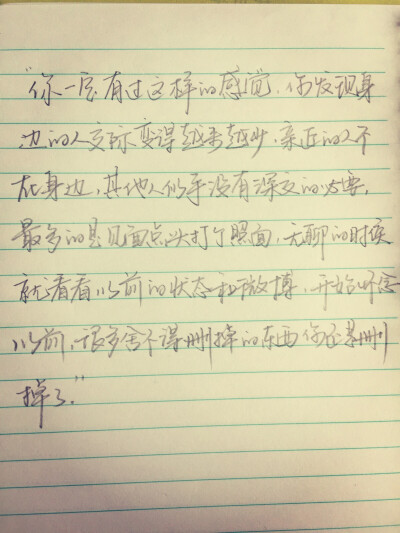 “你一定有过这样的感觉,你发现身
边的人交际变得越来越少,亲近的人不
在身边,其他人似乎没有深交的必要,
最多的是见面点头打个照面,无聊的时候
就看看以前的状态和微博,开始怀念
以前,很多舍不得删掉的东西你还是删
掉了.”